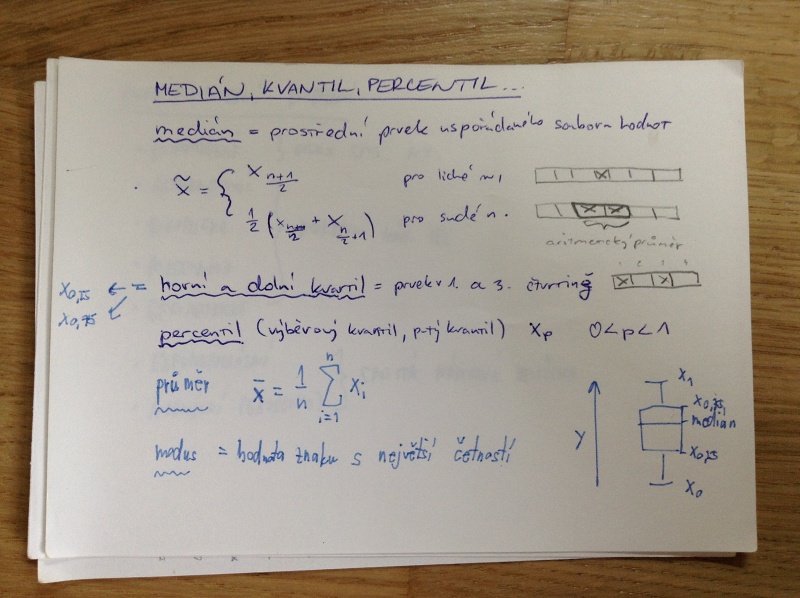 MEDIÁN, KVANTIL, PERCENTIL...
medián = prostřední prvek uspořádaného souboru hodnot
x̃ = { x_{n+1/2} pro liché n,
1/2 (x_{n/2} + x_{n/2+1}) pro sudé n.
aritmetický průměr
x₀,₂₅ ← = horní a dolní kvartil = prvek v 1. a 3. čtvrtině
x₀,₇₅
percentil (výběrový kvantil, p-tý kvantil) xₚ 0<p<1
průměr x̄ = 1/n ∑_{i=1}^{n} xᵢ
modus = hodnota znaku s největší četností
y
x₁
x₀,₇₅
medián
x₀,₂₅
x₀